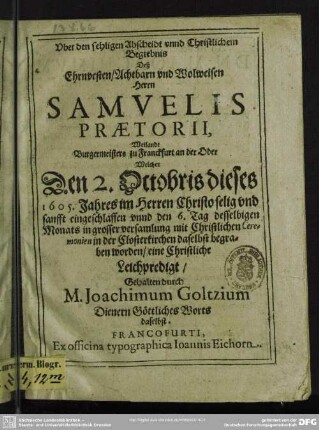 Vber den sehligen Abscheidt vnnd Christlichem
Begrebnis
Deß
Ehrnvesten/Achtbarn vnd Wolweisen
Herrn
SAMVELIS
PRÆTORII,
Weilandt
Burgermeisters zu Franckfurt an der Oder
Welcher
Den 2. Octobris dieses
1605. Jahres im Herren Christo selig vnd
sanfft eingeschlaffen vnnd den 6. Tag desselbigen
Monats in grosser versamlung mit Christlichen Cere-
monien in der Closterkirchen daselbst begra-
ben worden/eine Christliche
Leichpredigt/
Gehalten durch
M. Joachimum Goltzium
Dienern Göttliches Worts
daselbst.
FRANCOFURTI,
Ex officina typographica Ioannis Eichorn.
Biogr.
4, 12m
DFG